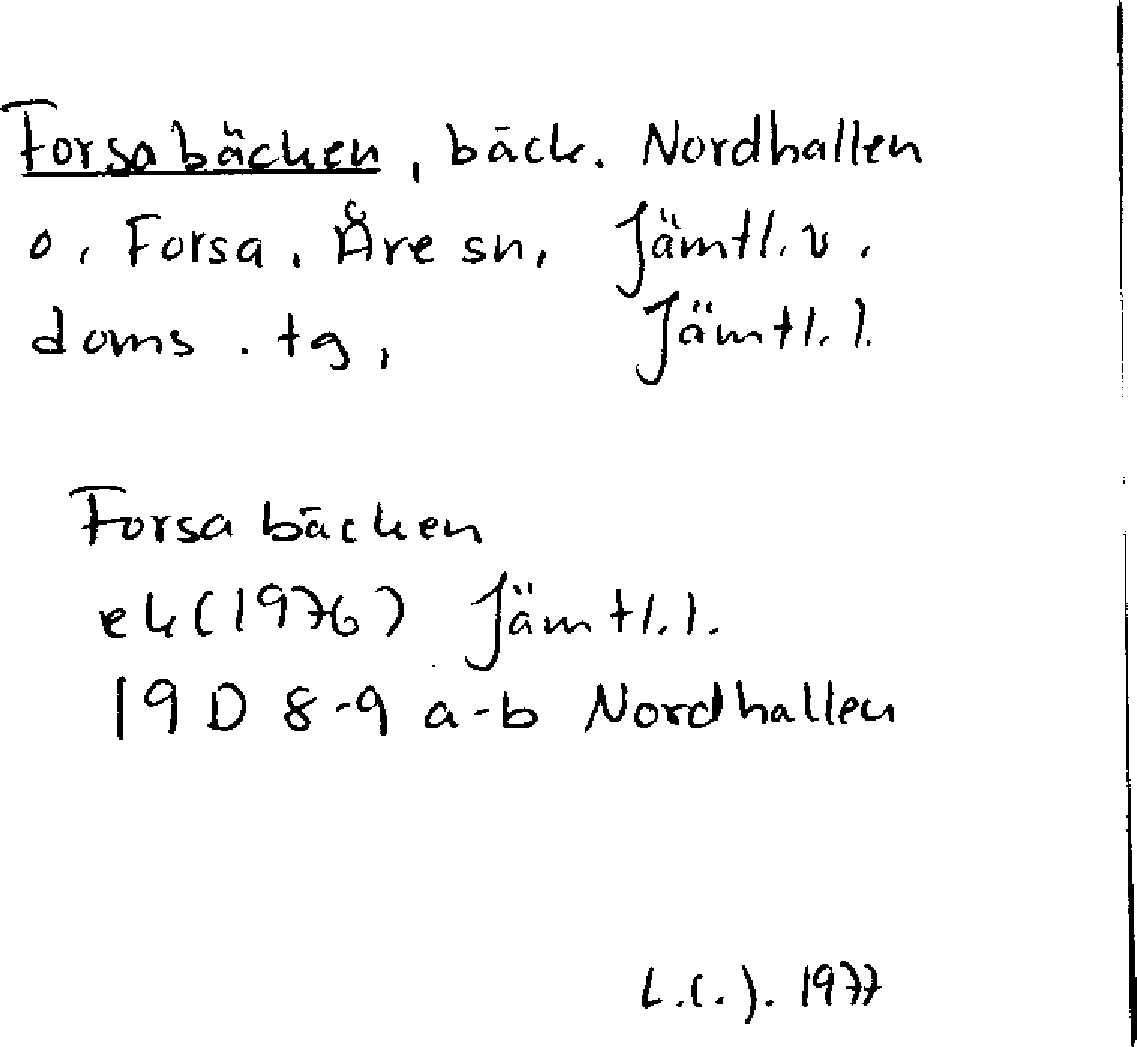 Forsabäcken, bäck. Nordhallen
o. Forsa. Åre sn, Jämtl. v.
doms. tg, Jämtl. l.
Forsabäcken
ek (1976) Jämtl. l.
19 D 8-9 a-b Nordhallen
1977